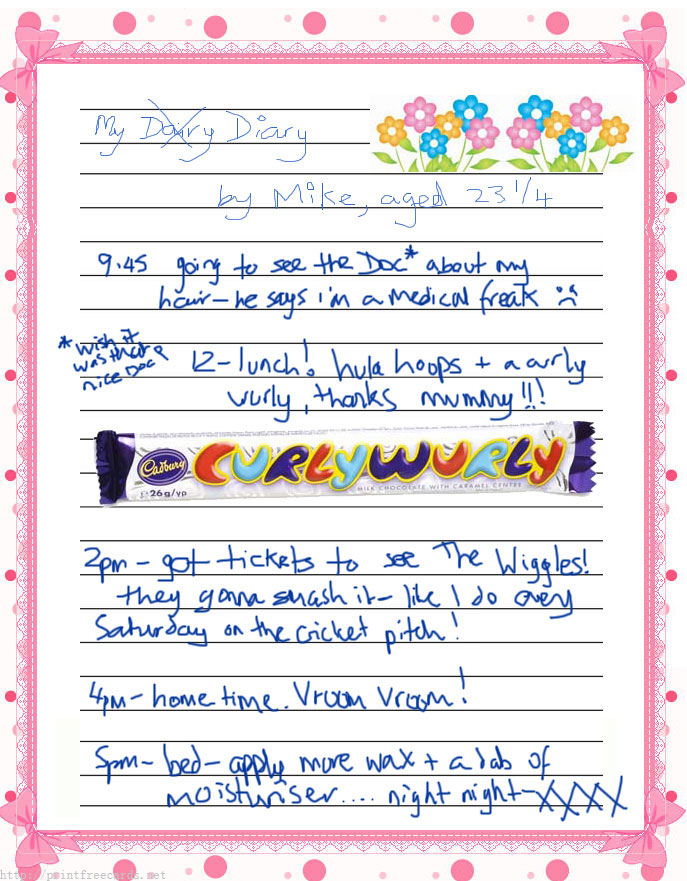 My Dairy Diary
by Mike, aged 23 1/4
9.45 going to see the Doc* about my
hair - he says i'm a medical freak :(
*wish it
was that a
nice Doc
12 - lunch! hula hoops + a curly
wurly, thanks mummy!!!
Cadbury
CURLYWURLY
MILK CHOCOLATE WITH CARAMEL CENTRE
26g/yp
2pm - got tickets to see The Wiggles!
they gonna smash it - like I do every
Saturday on the cricket pitch!
4pm - home time. Vroom Vroom!
5pm - bed - apply more wax + a dab of
moisturiser.... night night - XXXX
http://printfreecards.net